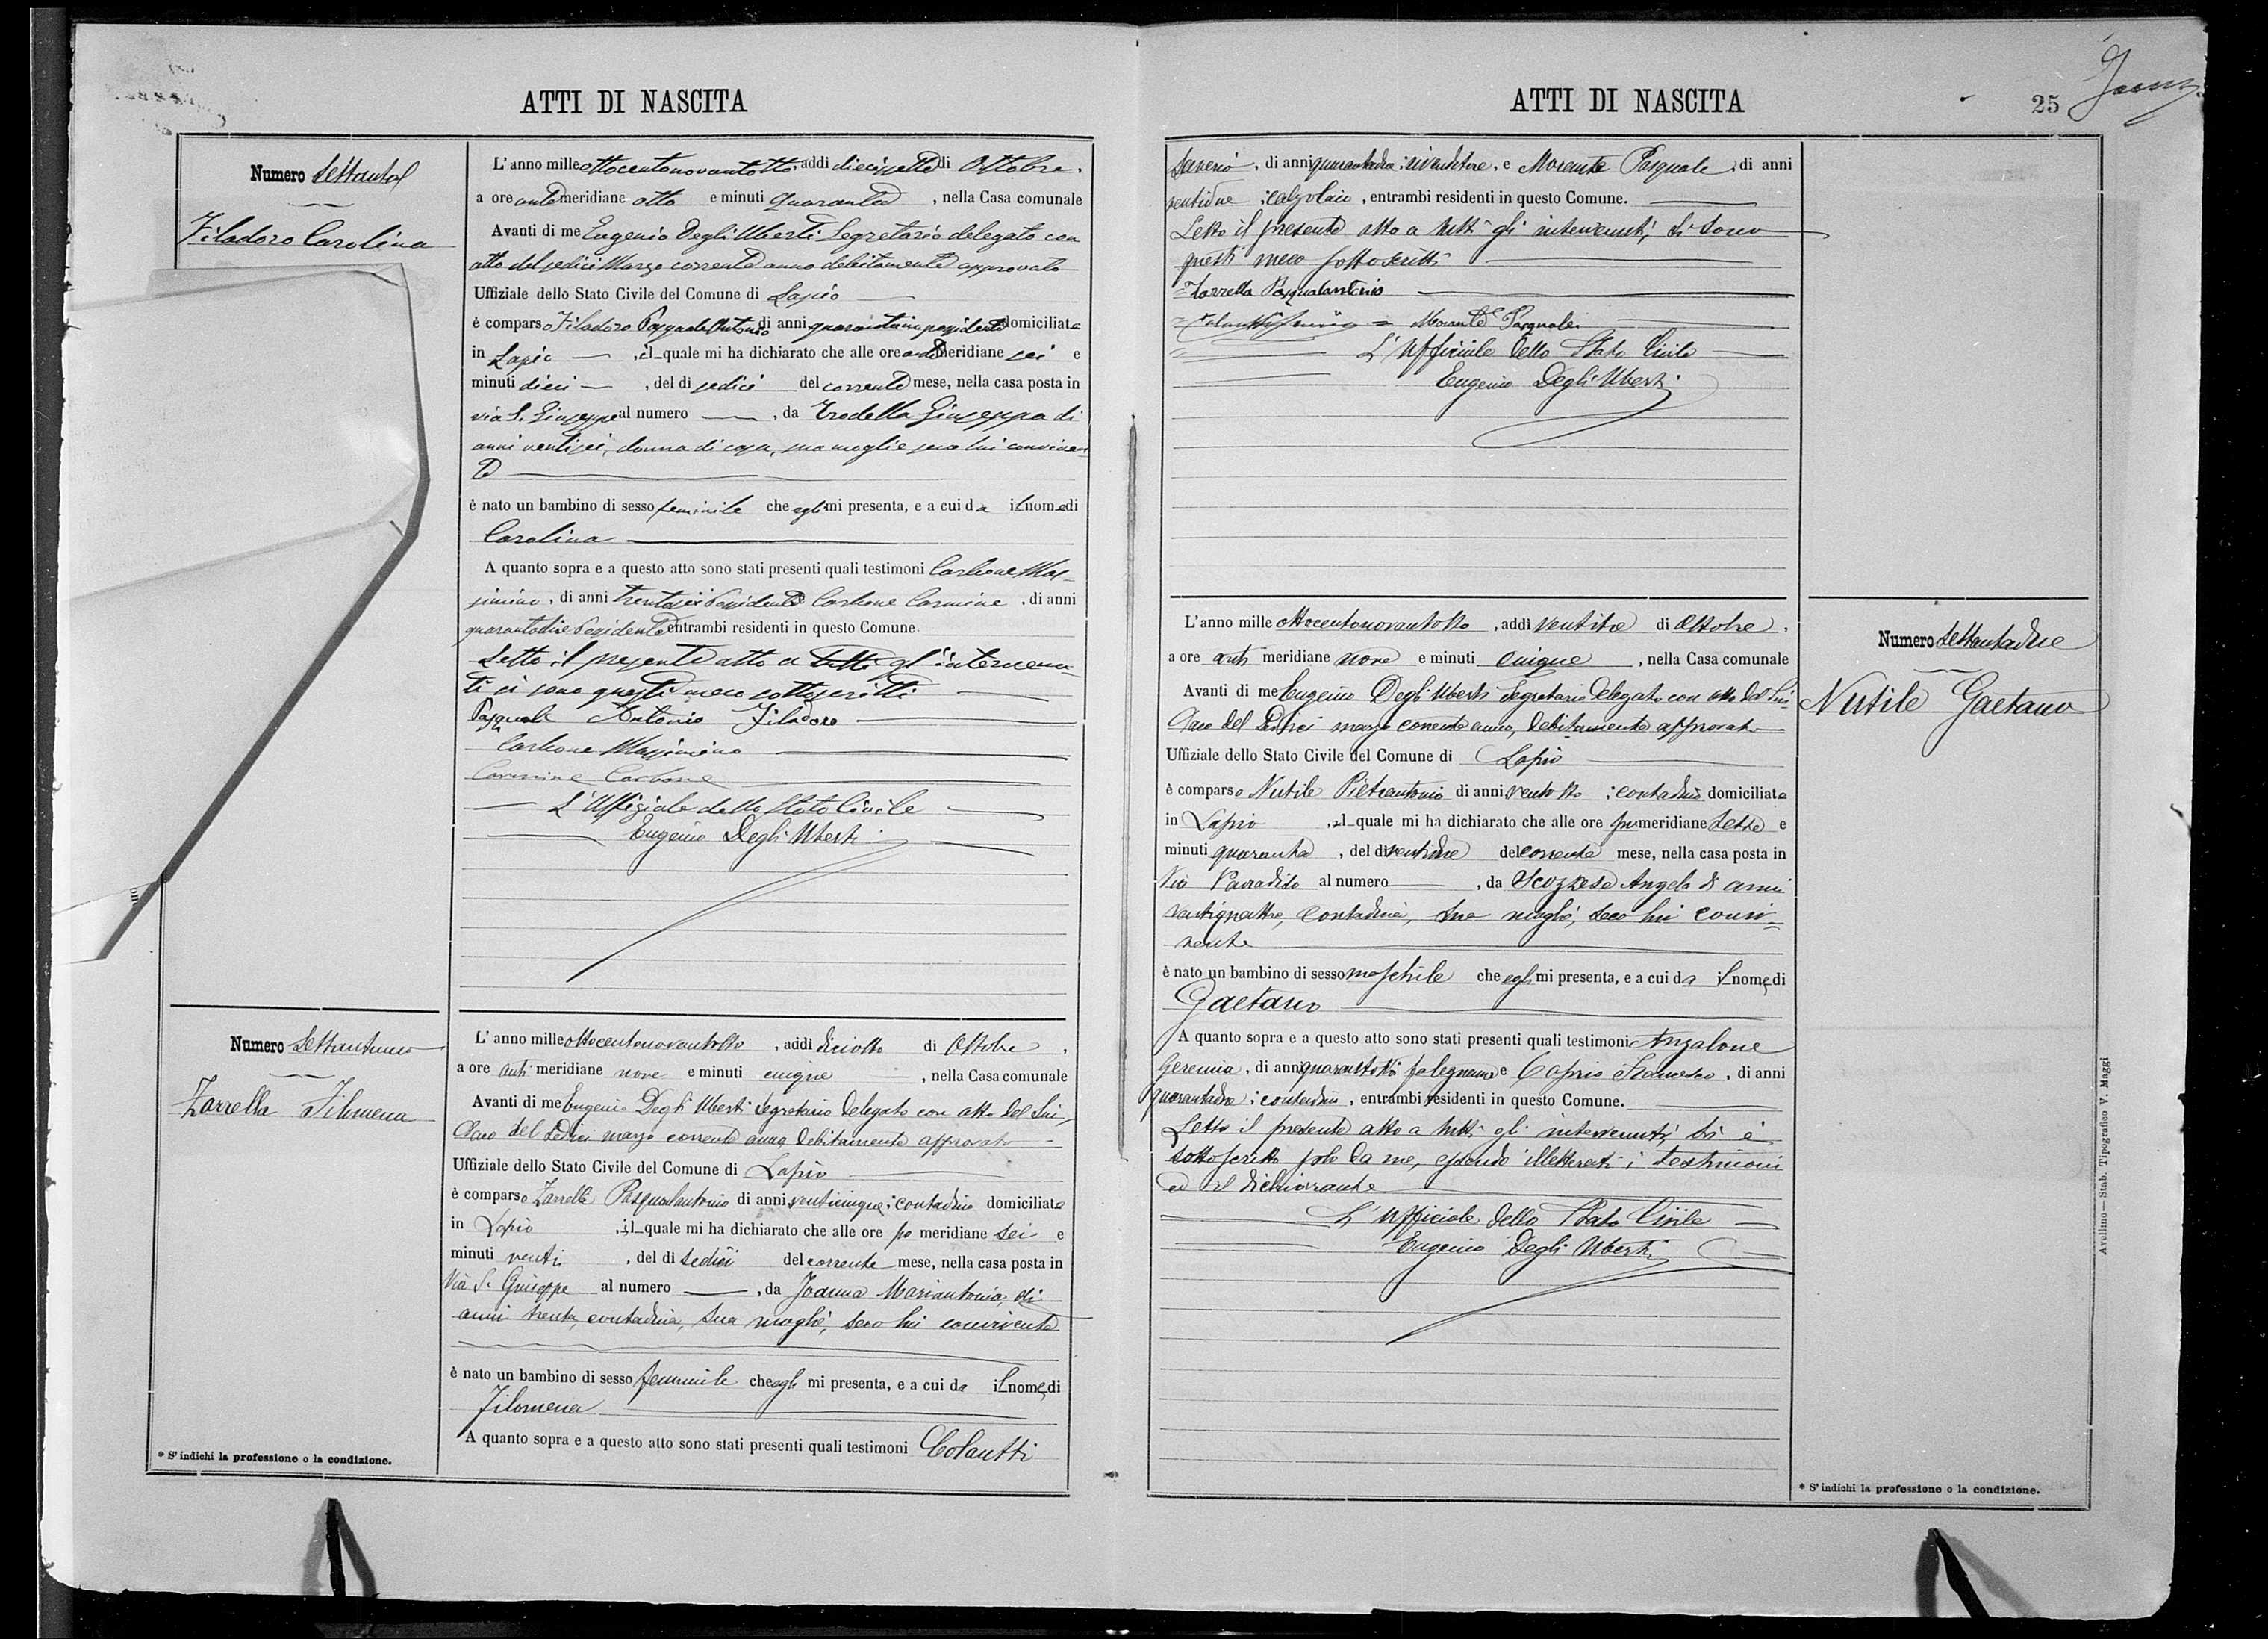 ATTI DI NASCITA
Numero Settanta
Filadoro Carolina
L'anno milleottocentonovantotto, addì diecisette di Ottobre,
a ore antemeridiane otto e minuti quaranta, nella Casa comunale
Avanti di me Eugenio Degli Uberti Segretario delegato con
atto del sedici Marzo corrente anno debitamente approvato
Uffiziale dello Stato Civile del Comune di Lapio
è comparso Filadoro Pasquale Antonio di anni quarantacinque possidente domiciliato
in Lapio, il quale mi ha dichiarato che alle ore antimeridiane sei e
minuti dieci, del dì sedici del corrente mese, nella casa posta in
via S. Giuseppe al numero , da Trodella Giuseppa di
anni ventisei, donna di casa, sua moglie seco lui conviven
te
è nato un bambino di sesso feminile che egli mi presenta, e a cui da il nome di
Carolina
A quanto sopra e a questo atto sono stati presenti quali testimoni Carbone Mas-
simino, di anni trentasei Possidente e Carbone Carmine, di anni
quarantadue Possidente entrambi residenti in questo Comune.
Letto il presente atto a tutti gl'intervenu-
ti si sono questi meco sottoscritti
Pasquale Antonio Filadoro
Carbone Massimino
Carmine Carbone
L'Uffiziale dello Stato Civile
Eugenio Degli Uberti
Numero Settantuno
Zarrella Filomena
L'anno milleottocentonovantotto, addì diciotto di Ottobre,
a ore anti meridiane nove e minuti cinque, nella Casa comunale
Avanti di me Eugenio Degli Uberti Segretario Delegato con atto del Sin-
daco del Sedici marzo corrente anno debitamente approvato
Uffiziale dello Stato Civile del Comune di Lapio
è comparso Zarrella Pasqualantonio di anni venticinque; contadino domiciliato
in Lapio, il quale mi ha dichiarato che alle ore po meridiane sei e
minuti venti, del dì sedici del corrente mese, nella casa posta in
Via S. Giuseppe al numero , da Joanna Mariantonia, di
anni trenta, contadina, sua moglie, seco lui convivente
è nato un bambino di sesso femminile che egli mi presenta, e a cui da il nome di
Filomena
A quanto sopra e a questo atto sono stati presenti quali testimoni Colantti
* S'indichi la professione o la condizione.
ATTI DI NASCITA
25
Saverio, di anni quarantadue; rivenditore, e Morante Pasquale, di anni
ventidue; calzolaio, entrambi residenti in questo Comune.
Letto il presente atto a tutti gli intervenuti, si sono
questi meco sottoscritti
Zarrella Pasqualantonio
Morante Pasquale
L'Ufficiale dello Stato Civile
Eugenio Degli Uberti
Numero Settantadue
Nutile Gaetano
L'anno mille ottocentonovantotto, addì ventitre di Ottobre,
a ore anti meridiane nove e minuti cinque, nella Casa comunale
Avanti di me Eugenio Degli Uberti Segretario Delegato con atto del Sin-
daco del Sedici marzo corrente anno, debitamente approvato
Uffiziale dello Stato Civile del Comune di Lapio
è comparso Nutile Pietrantonio di anni ventotto; contadino domiciliato
in Lapio, il quale mi ha dichiarato che alle ore pomeridiane Sette e
minuti quaranta, del dì ventidue del corrente mese, nella casa posta in
Via Paradiso al numero , da Scozzese Angela di anni
ventiquattro, contadina, sua moglie, seco lui convi-
vente
è nato un bambino di sesso maschile che egli mi presenta, e a cui da il nome di
Gaetano
A quanto sopra e a questo atto sono stati presenti quali testimoni Anzalone
Geremia, di anni quarantotto falegname e Caprio Francesco, di anni
quarantadue; contadino, entrambi residenti in questo Comune.
Letto il presente atto a tutti gli intervenuti, si è
sottoscritto solo da me, essendo illetterati i testimoni
ed il dichiarante
L'Ufficiale dello Stato Civile
Eugenio Degli Uberti
* S'indichi la professione o la condizione.
Avellino—Stab. Tipografico V. Maggi